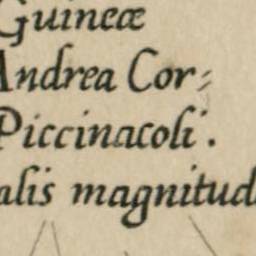 Guineæ
Andrea Cor-
Piccinacoli.
alis magnitud